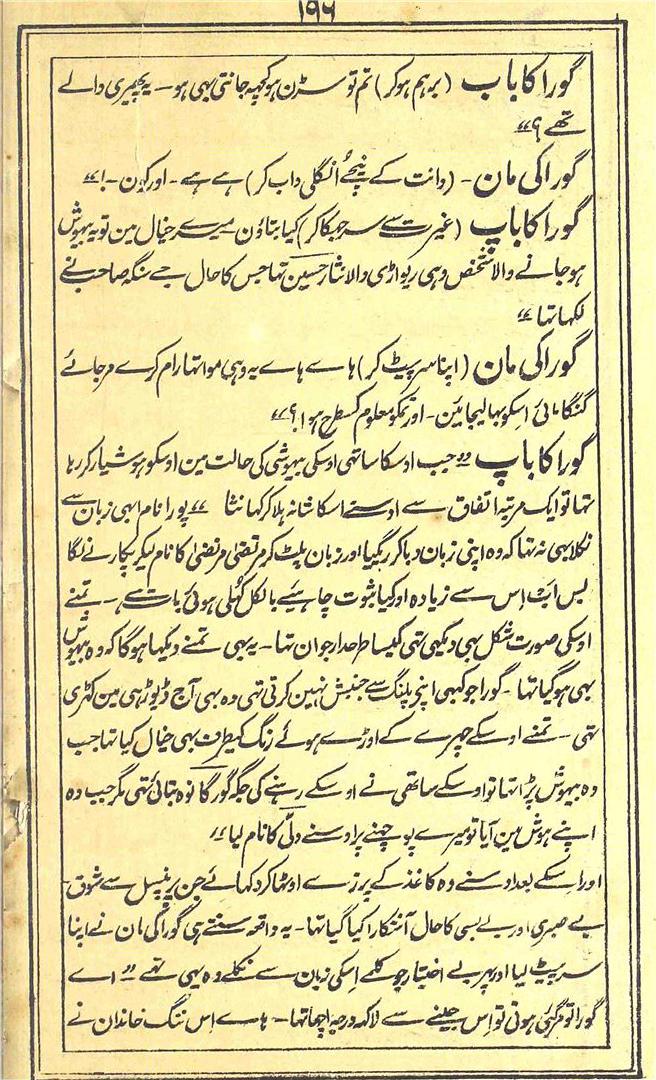 ۱۹۶
گورا کا باپ (برہم ہوکر) تم تو سڑن ہو کچہہ جانتی بہی ہو۔ یہ پھیری والے
تھے؟"
گورا کی مان۔ (دانت کے نیچے اُنگلی داب کر) ہے ہے۔ اور کون۔!"
گورا کا باپ (غیرت سے سر جہکا کر) کیا بتاؤن میرے خیال مین تو یہ بیہوش
ہو جانے والا شخص وہی ریواڑی والا نثار حسین تہا جس کا حال جے سنگہ صاحب نے
لکہا تہا"
گورا کی مان (اپنا سر پیٹ کر) ہاے ہاے یہ وہی موا تہا رام کرے مر جائے
گنگا مائی اسکو بہا لیجائین۔ اور تمکو معلوم کسطرح ہوا؟"
گورا کا باپ "جب اوسکا ساتھی اوسکی بیہوشی کی حالت مین اوسکو ہوشیار کر رہا
تہا تو ایک مرتبہ اتفاق سے اوسنے اسکا شانہ ہلا کر کہا نثا " پورا نام ابہی زبان سے
نکلا بہی نہ تہا کہ وہ اپنی زبان دبا کر رہگیا اور زبان پلٹ کر مرتضیٰ مرتضیٰ کا نام لیکر پکارنے لگا
بس اب اِس سے زیادہ اور کیا ثبوت چاہیئے بالکل کُہلی ہوئی بات ہے۔ تمنے
اوسکی صورت شکل بہی دیکہی تہی کیسا طرحدار جوان تہا۔ یہ بہی تمنے دیکہا ہوگا کہ وہ بیہوش
بہی ہوگیا تہا۔ گورا جو کبہی اپنی پلنگ سے جنبش نہین کرتی تہی وہ بہی آج ڈیوڑہی مین کہڑی
تہی۔ تمنے اوسکے چہرے کے اوڑے ہوئے رنگ کیطرف بہی خیال کیا تہا جب
وہ بیہوش پڑا تہا تو اوسکے ساتھی نے اوسکے رہنے کی جگہ گورگانوہ بتائی تہی مگر جب وہ
اپنے ہوش مین آیا تو میرے پوچہنے پر اوسنے دلّی کا نام لیا"
اور اِسکے بعد اوسنے وہ کاغذ کے پرزے اوٹہا کر دکہائے جن پر پنسل سے شوق
بے صبری اور بے بسی کا حال آشکارا کیا گیا تہا۔ یہ واقعہ سنتے ہی گورا کی مان نے اپنا
سر پیٹ لیا اور پہر بے اختیار جو کلمے اِسکی زبان سے نکلے وہ یہی تہے "اے
گورا تو مر گئی ہوتی تو اِس جینے سے لاکہہ درجہ اچہا تہا۔ ہاے اِس ننگ خاندان نے